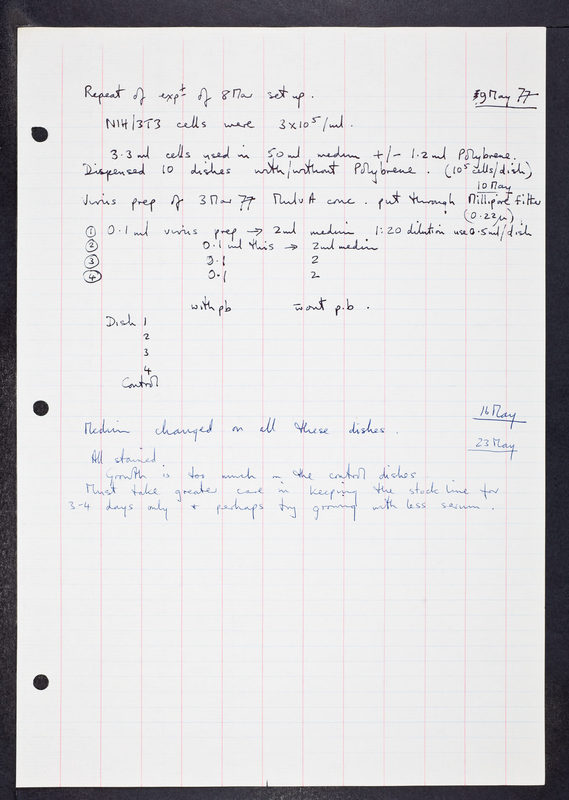 Repeat of expt of 8 Mar set up. 9 May 77
NIH/3T3 cells were 3x10⁵/ml.
3.3 ml cells used in 50 ml medium +/- 1.2 ml Polybrene.
Dispensed 10 dishes with/without Polybrene. (10⁵ cells/dish)
10 May
Virus prep of 3 Mar 77 MuLV A conc. put through Millipore filter
(0.22μ)
① 0.1 ml virus prep → 2ml medium 1:20 dilution use 0.5ml/dish
② 0.1 ml this → 2ml medium
③ 0.1 2
④ 0.1 2
with pb wout p.b.
Dish 1
2
3
4
Control
16 May
Medium changed on all these dishes.
23 May
All stained
Growth is too much on the control dishes
Must take greater care in keeping the stock line for
3-4 days only + perhaps try growing with less serum.